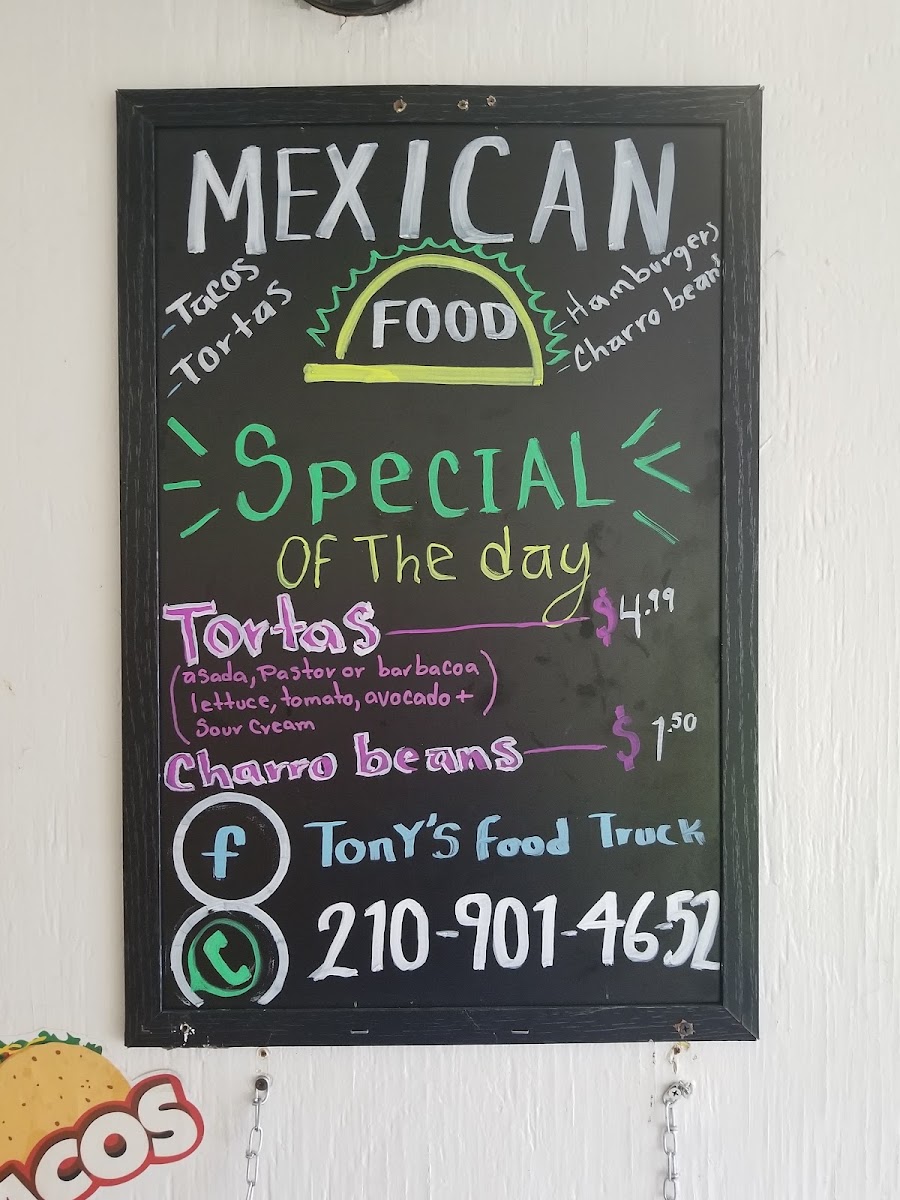 MEXICAN
FOOD
-Tacos
-Tortas
-Hamburgers
-Charro beans
SpecIAL
OF The day
Tortas $4.99
(asada, Pastor or barbacoa
lettuce, tomato, avocado +
Sour Cream)
Charro beans $1.50
f TonY'S Food Truck
210-901-4652
ACOS